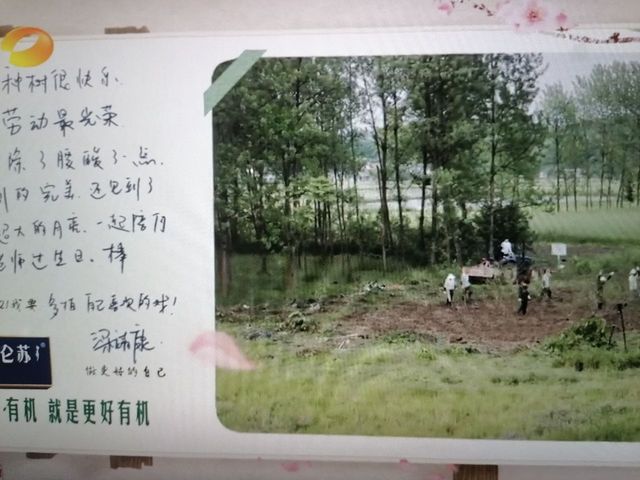 种树很快乐
劳动最光荣
除了腰酸了一点,
的完美.还见到了
超大的月亮.一起陪
老师过生日.棒
我要多植自己喜欢的球!
梁
做更好的自己
仑苏
有机 就是更好有机